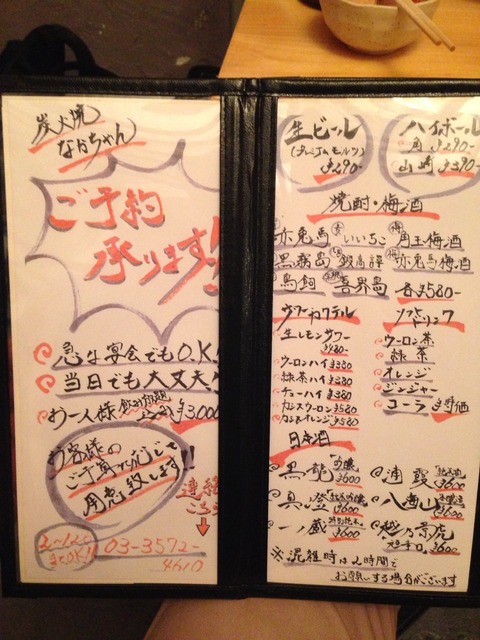 炭火焼
なおちゃん
ご予約
承ります!!
急な宴会でもO.K!
当日でも大丈夫
お一人様 飲み放題 ¥3,000
お客様の
ご予算に応じて
用意致します!!
連絡
↓
03-3572-
4610
生ビール
(プレミアムモルツ)
¥290-
ハイボール
角 ¥290-
山崎 ¥390-
焼酎・梅酒
赤兎馬 いいちこ 角玉梅酒
黒霧島 銀高譚 赤兎馬梅酒
鳥飼 喜界島 各¥580-
サワーカクテル
生レモンサワー
¥480-
ウーロンハイ ¥380
緑茶ハイ ¥380
チューハイ ¥380
カシスウーロン ¥580
カシスオレンジ ¥580
ソフトドリンク
ウーロン茶
緑茶
オレンジ
ジンジャー
コーラ
日本酒
黒龍 吟醸 ¥600
真澄 ¥600
一ノ蔵 ¥600
浦霞 ¥600
八海山 ¥600
越乃景虎 ¥600
※混雑時は2時間で
お願いする場合がございます